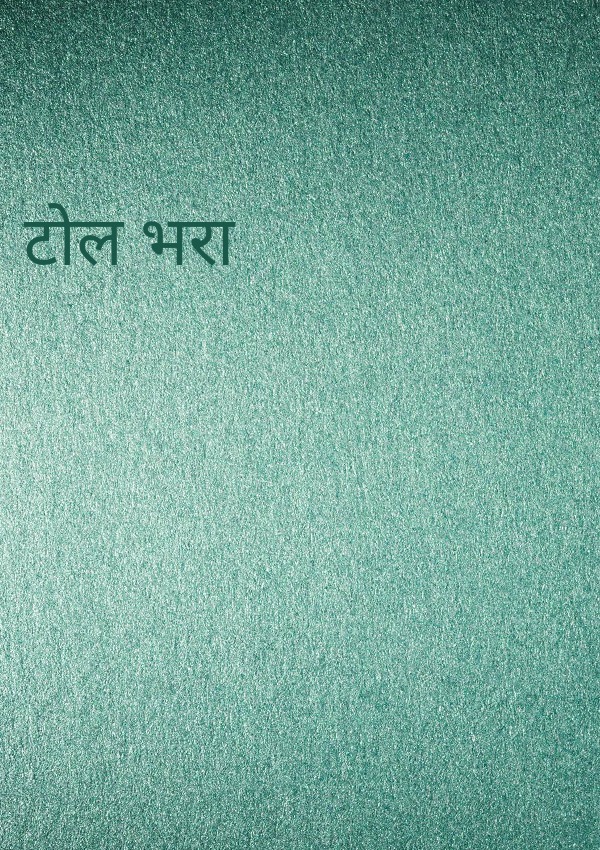 टोल भरा